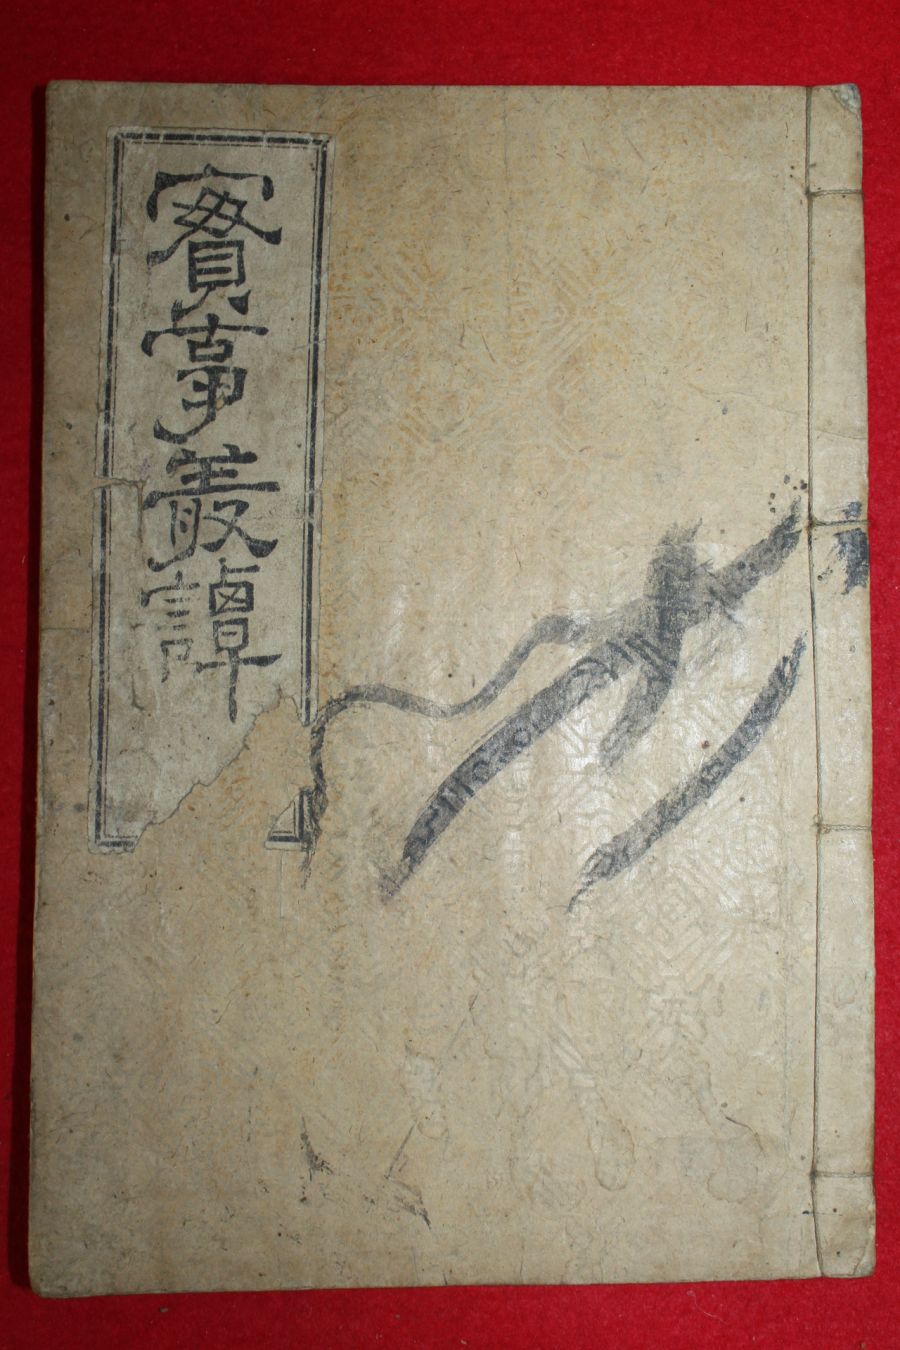 實事叢譚